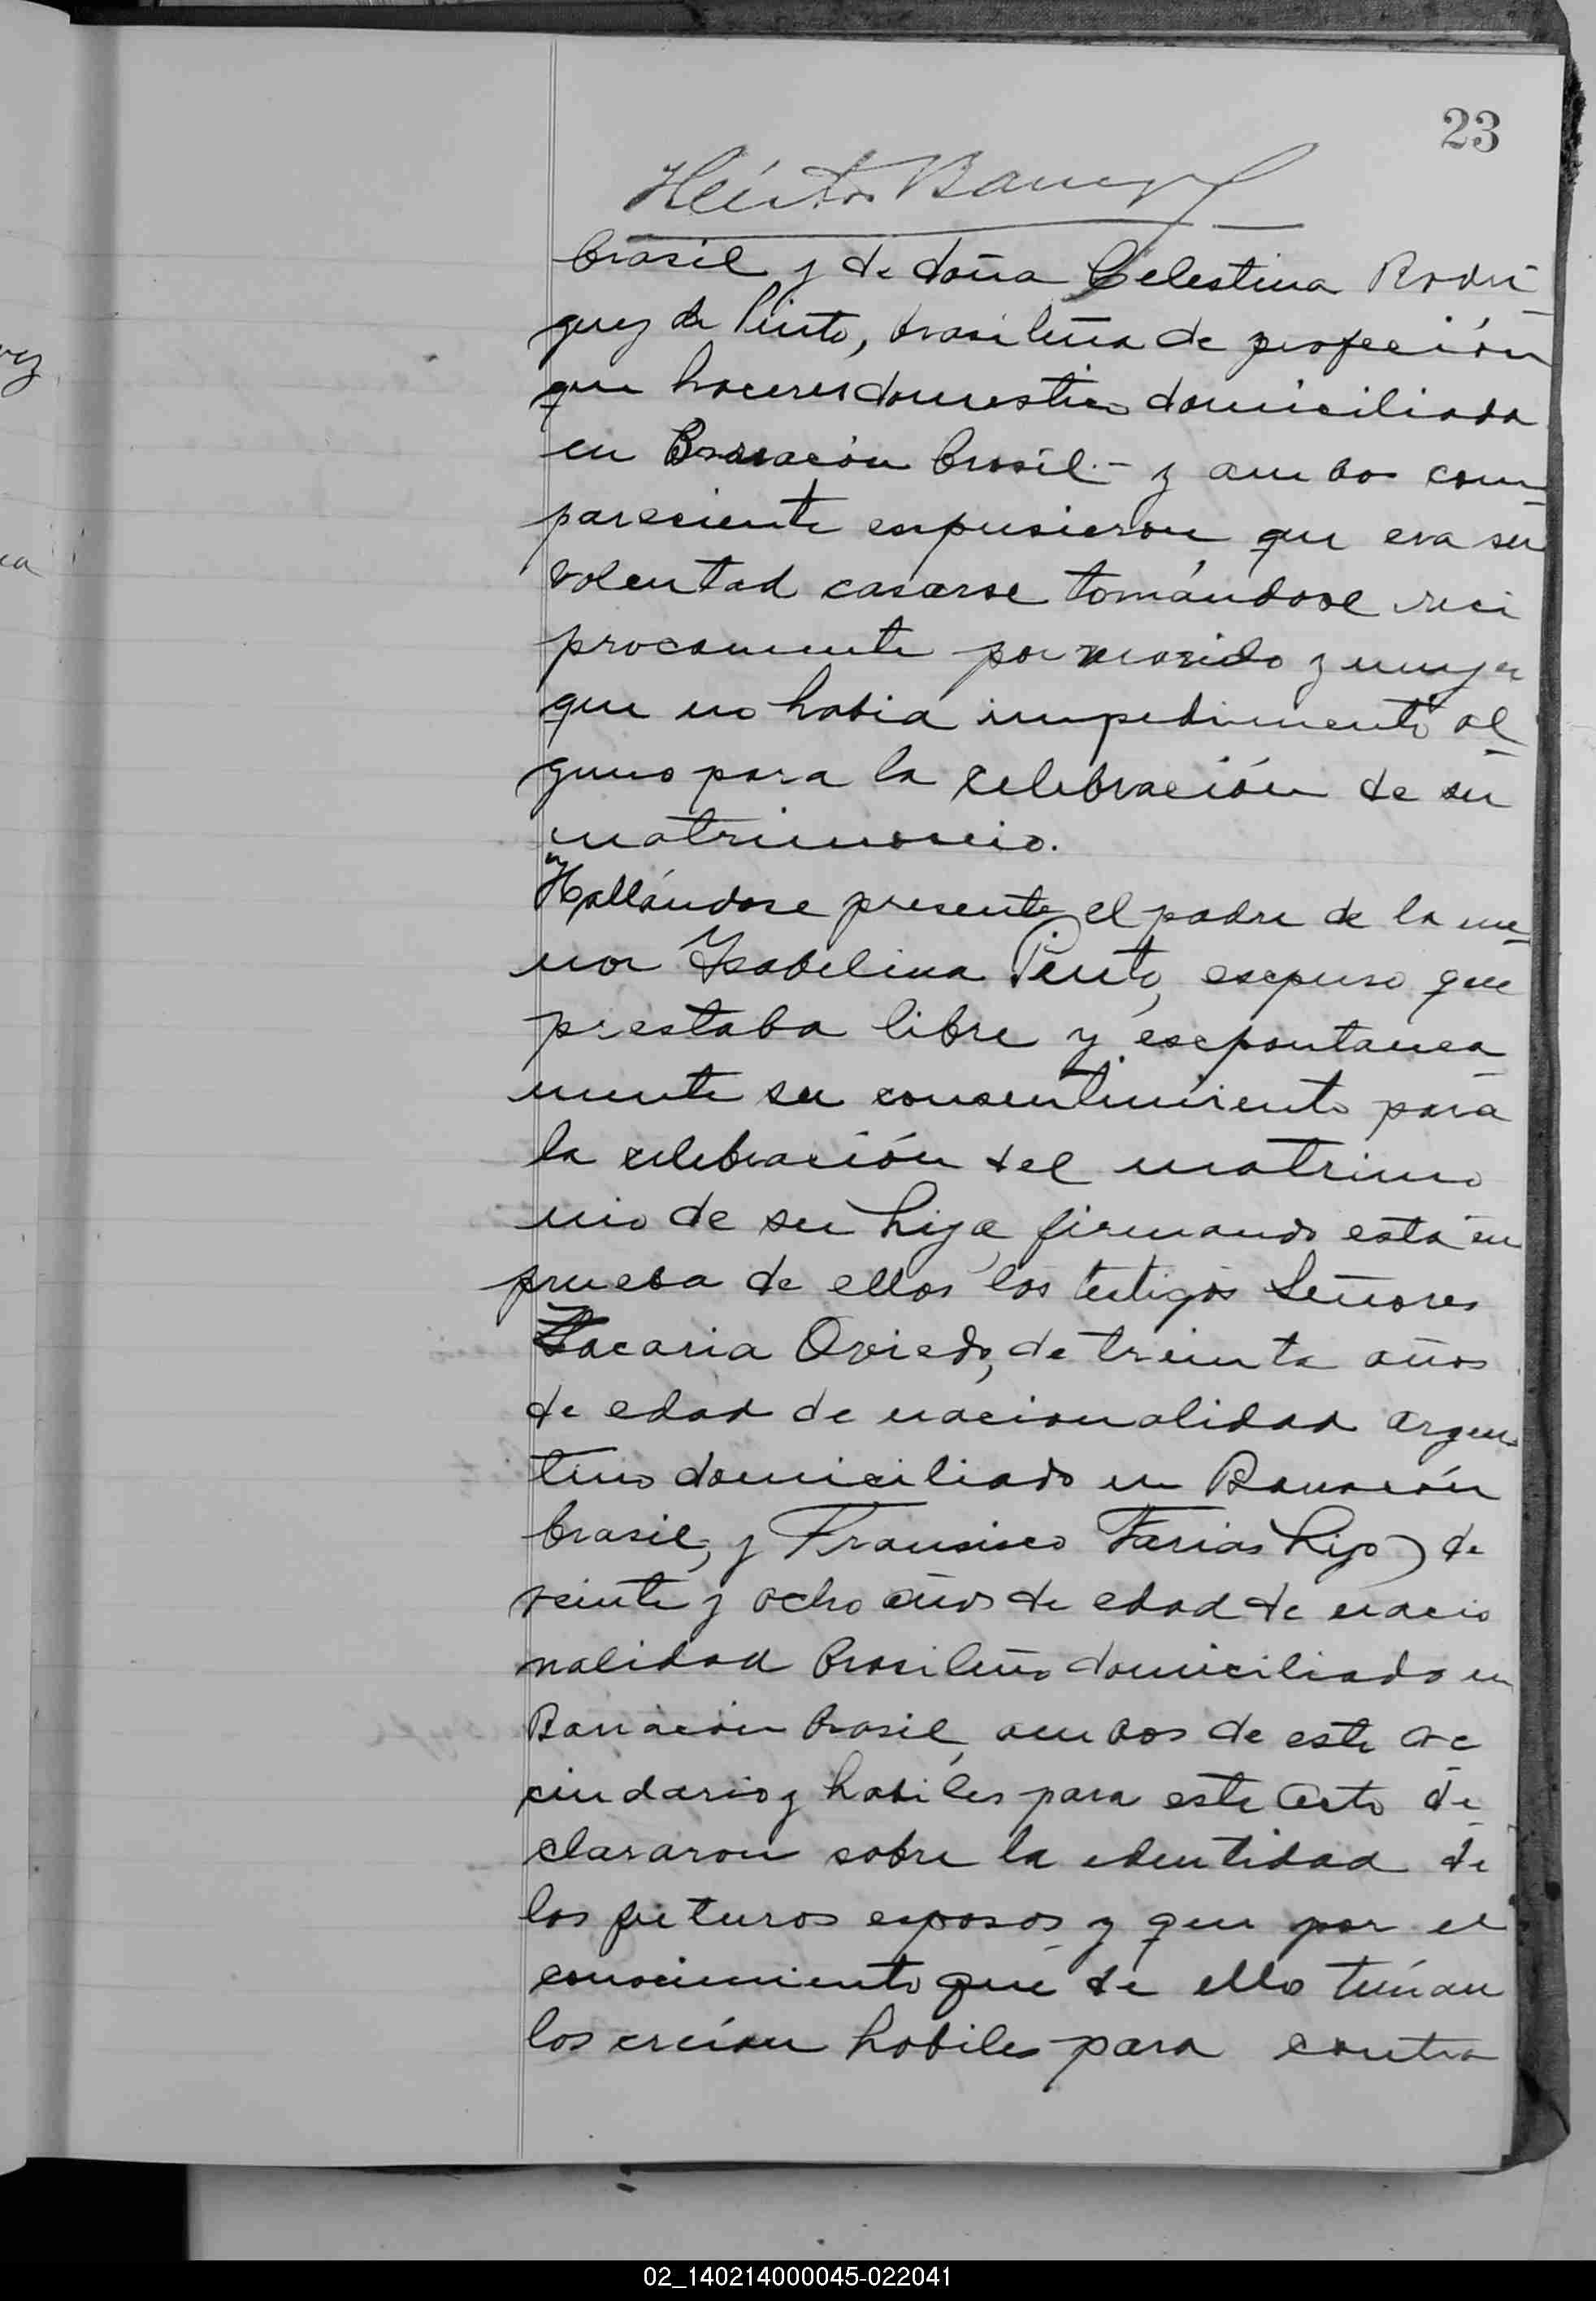 23
Héctor Barreyro
brasil y de doña Celestina Rodri
guez de Pinto, brasileña de profeción
que haceres domestico domiciliada
en Barracón brasil.- y ambos com
pareciente expusieron que era su
voluntad casarse tomándose reci
procamente por marido y mujer
que no habia impedimento al
guno para la celebración de su
matrimonio.
Hallándose presente el padre de la me
nor Ysabelina Pinto, expuso que
prestaba libre y expontanea
mente su consentimiento para
la celebración del matrimo
nio de su hija, firmando esta en
prueba de ellos los testigos Señores
Zacaria Oviedo, de treinta años
de edad de nacionalidad argen
tino domiciliado en Barracón
brasil, y Fransisco Farias hijo) de
veinte y ocho años de edad de nacio
nalidad brasileño domiciliado en
Barracón brasil, ambos de este ve
cindario y habiles para este acto de
clararon sobre la edentidad de
los futuros esposos y que por el
conocimiento que de ello tenían
los creían habiles para contra
vez
ca
02_140214000045-022041